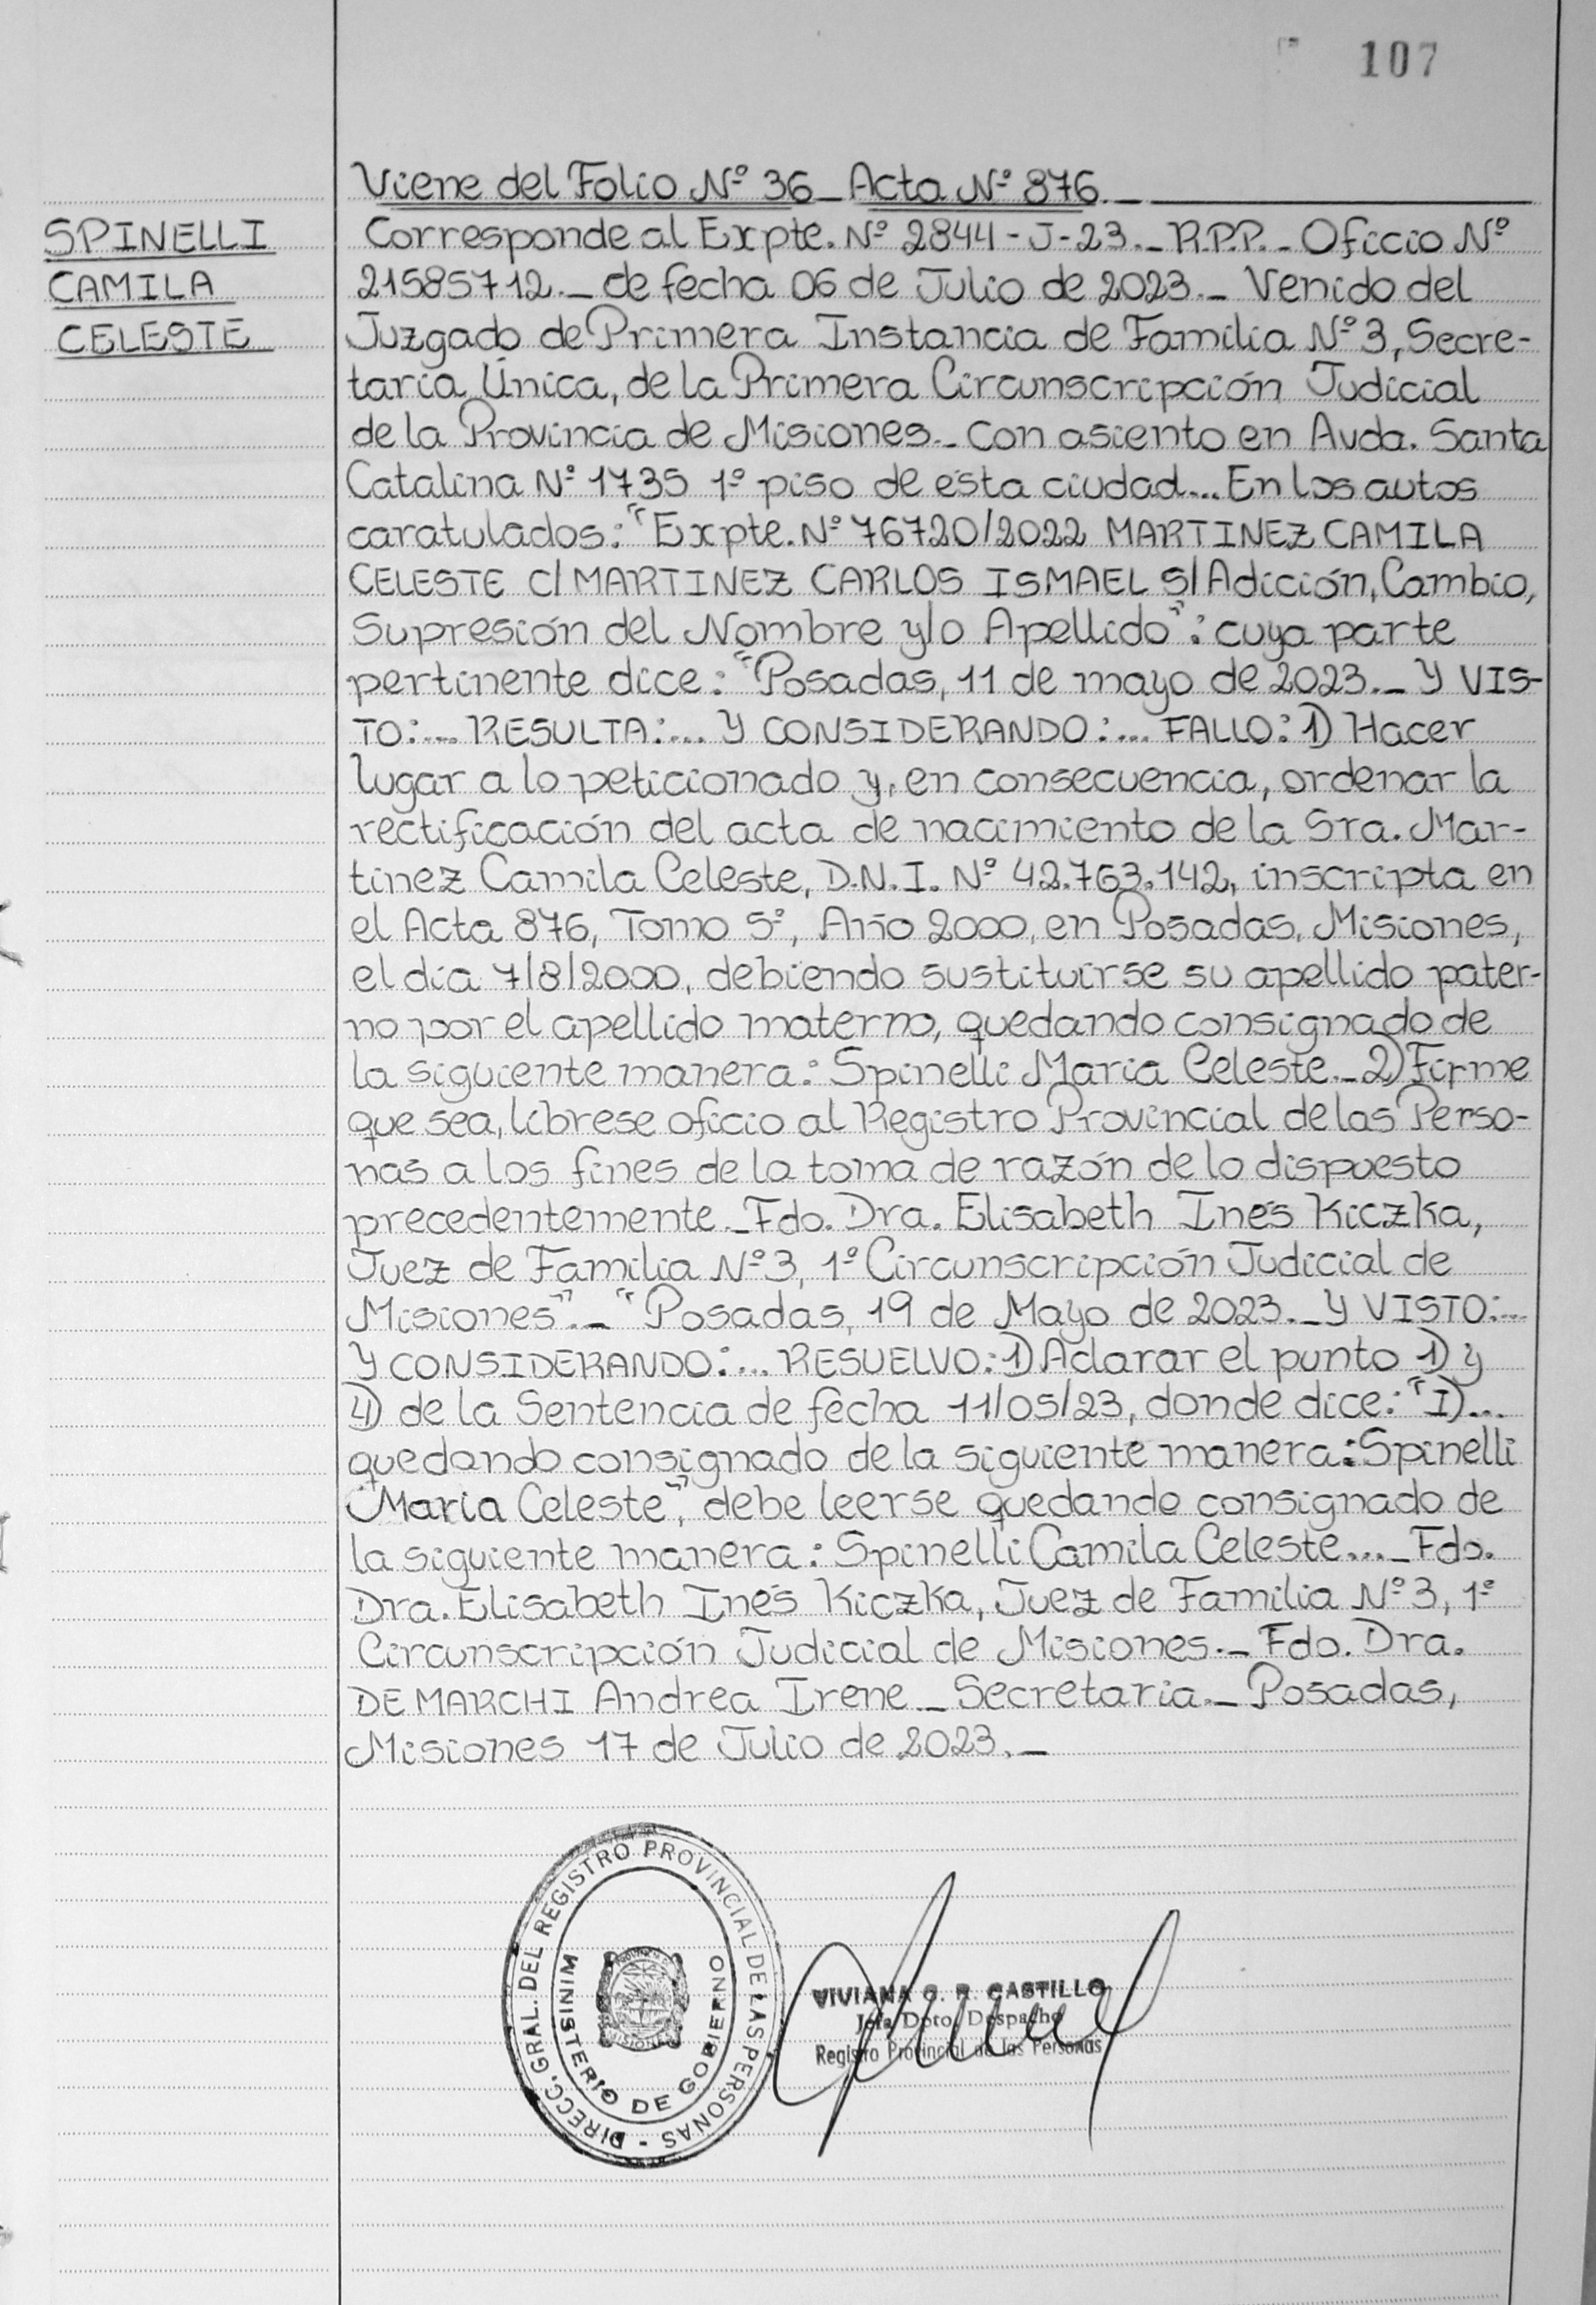 107
Viene del Folio Nº 36_ Acta Nº 876._
SPINELLI
CAMILA
CELESTE
Corresponde al Expte. Nº 2844-J-23._ R.P.P._ Oficio Nº
21585712._ de fecha 06 de Julio de 2023._ Venido del
Juzgado de Primera Instancia de Familia Nº 3, Secre-
taría Única, de la Primera Circunscripción Judicial
de la Provincia de Misiones._ Con asiento en Avda. Santa
Catalina Nº 1735 1º piso de esta ciudad... En los autos
caratulados: "Expte. Nº 76720/2022 MARTINEZ CAMILA
CELESTE C/ MARTINEZ CARLOS ISMAEL S/ Adición, Cambio,
Supresión del Nombre y/o Apellido": cuya parte
pertinente dice: "Posadas, 11 de mayo de 2023._ Y VIS-
TO:... RESULTA:... Y CONSIDERANDO:... FALLO: 1) Hacer
lugar a lo peticionado y, en consecuencia, ordenar la
rectificación del acta de nacimiento de la Sra. Mar-
tinez Camila Celeste, D.N.I. Nº 42.763.142, inscripta en
el Acta 876, Tomo 5º, Año 2000, en Posadas, Misiones,
el día 7/8/2000, debiendo sustituirse su apellido pater-
no por el apellido materno, quedando consignado de
la siguiente manera: Spinelli Maria Celeste._ 2) Firme
que sea, líbrese oficio al Registro Provincial de las Perso-
nas a los fines de la toma de razón de lo dispuesto
precedentemente._ Fdo. Dra. Elisabeth Inés Kiczka,
Juez de Familia Nº 3, 1º Circunscripción Judicial de
Misiones"._ "Posadas, 19 de Mayo de 2023._ Y VISTO:...
Y CONSIDERANDO:... RESUELVO: 1) Aclarar el punto 1) y
4) de la Sentencia de fecha 11/05/23, donde dice: "I)...
quedando consignado de la siguiente manera: Spinelli
Maria Celeste", debe leerse quedando consignado de
la siguiente manera: Spinelli Camila Celeste..._ Fdo.
Dra. Elisabeth Inés Kiczka, Juez de Familia Nº 3, 1º
Circunscripción Judicial de Misiones._ Fdo. Dra.
DE MARCHI Andrea Irene_ Secretaria._ Posadas,
Misiones 17 de Julio de 2023._
DIRECC. GRAL. DEL REGISTRO PROVINCIAL DE LAS PERSONAS -
MINISTERIO DE GOBIERNO
VIVIANA G. R. CASTILLO
Jefa Dpto. Despacho
Registro Provincial de las Personas